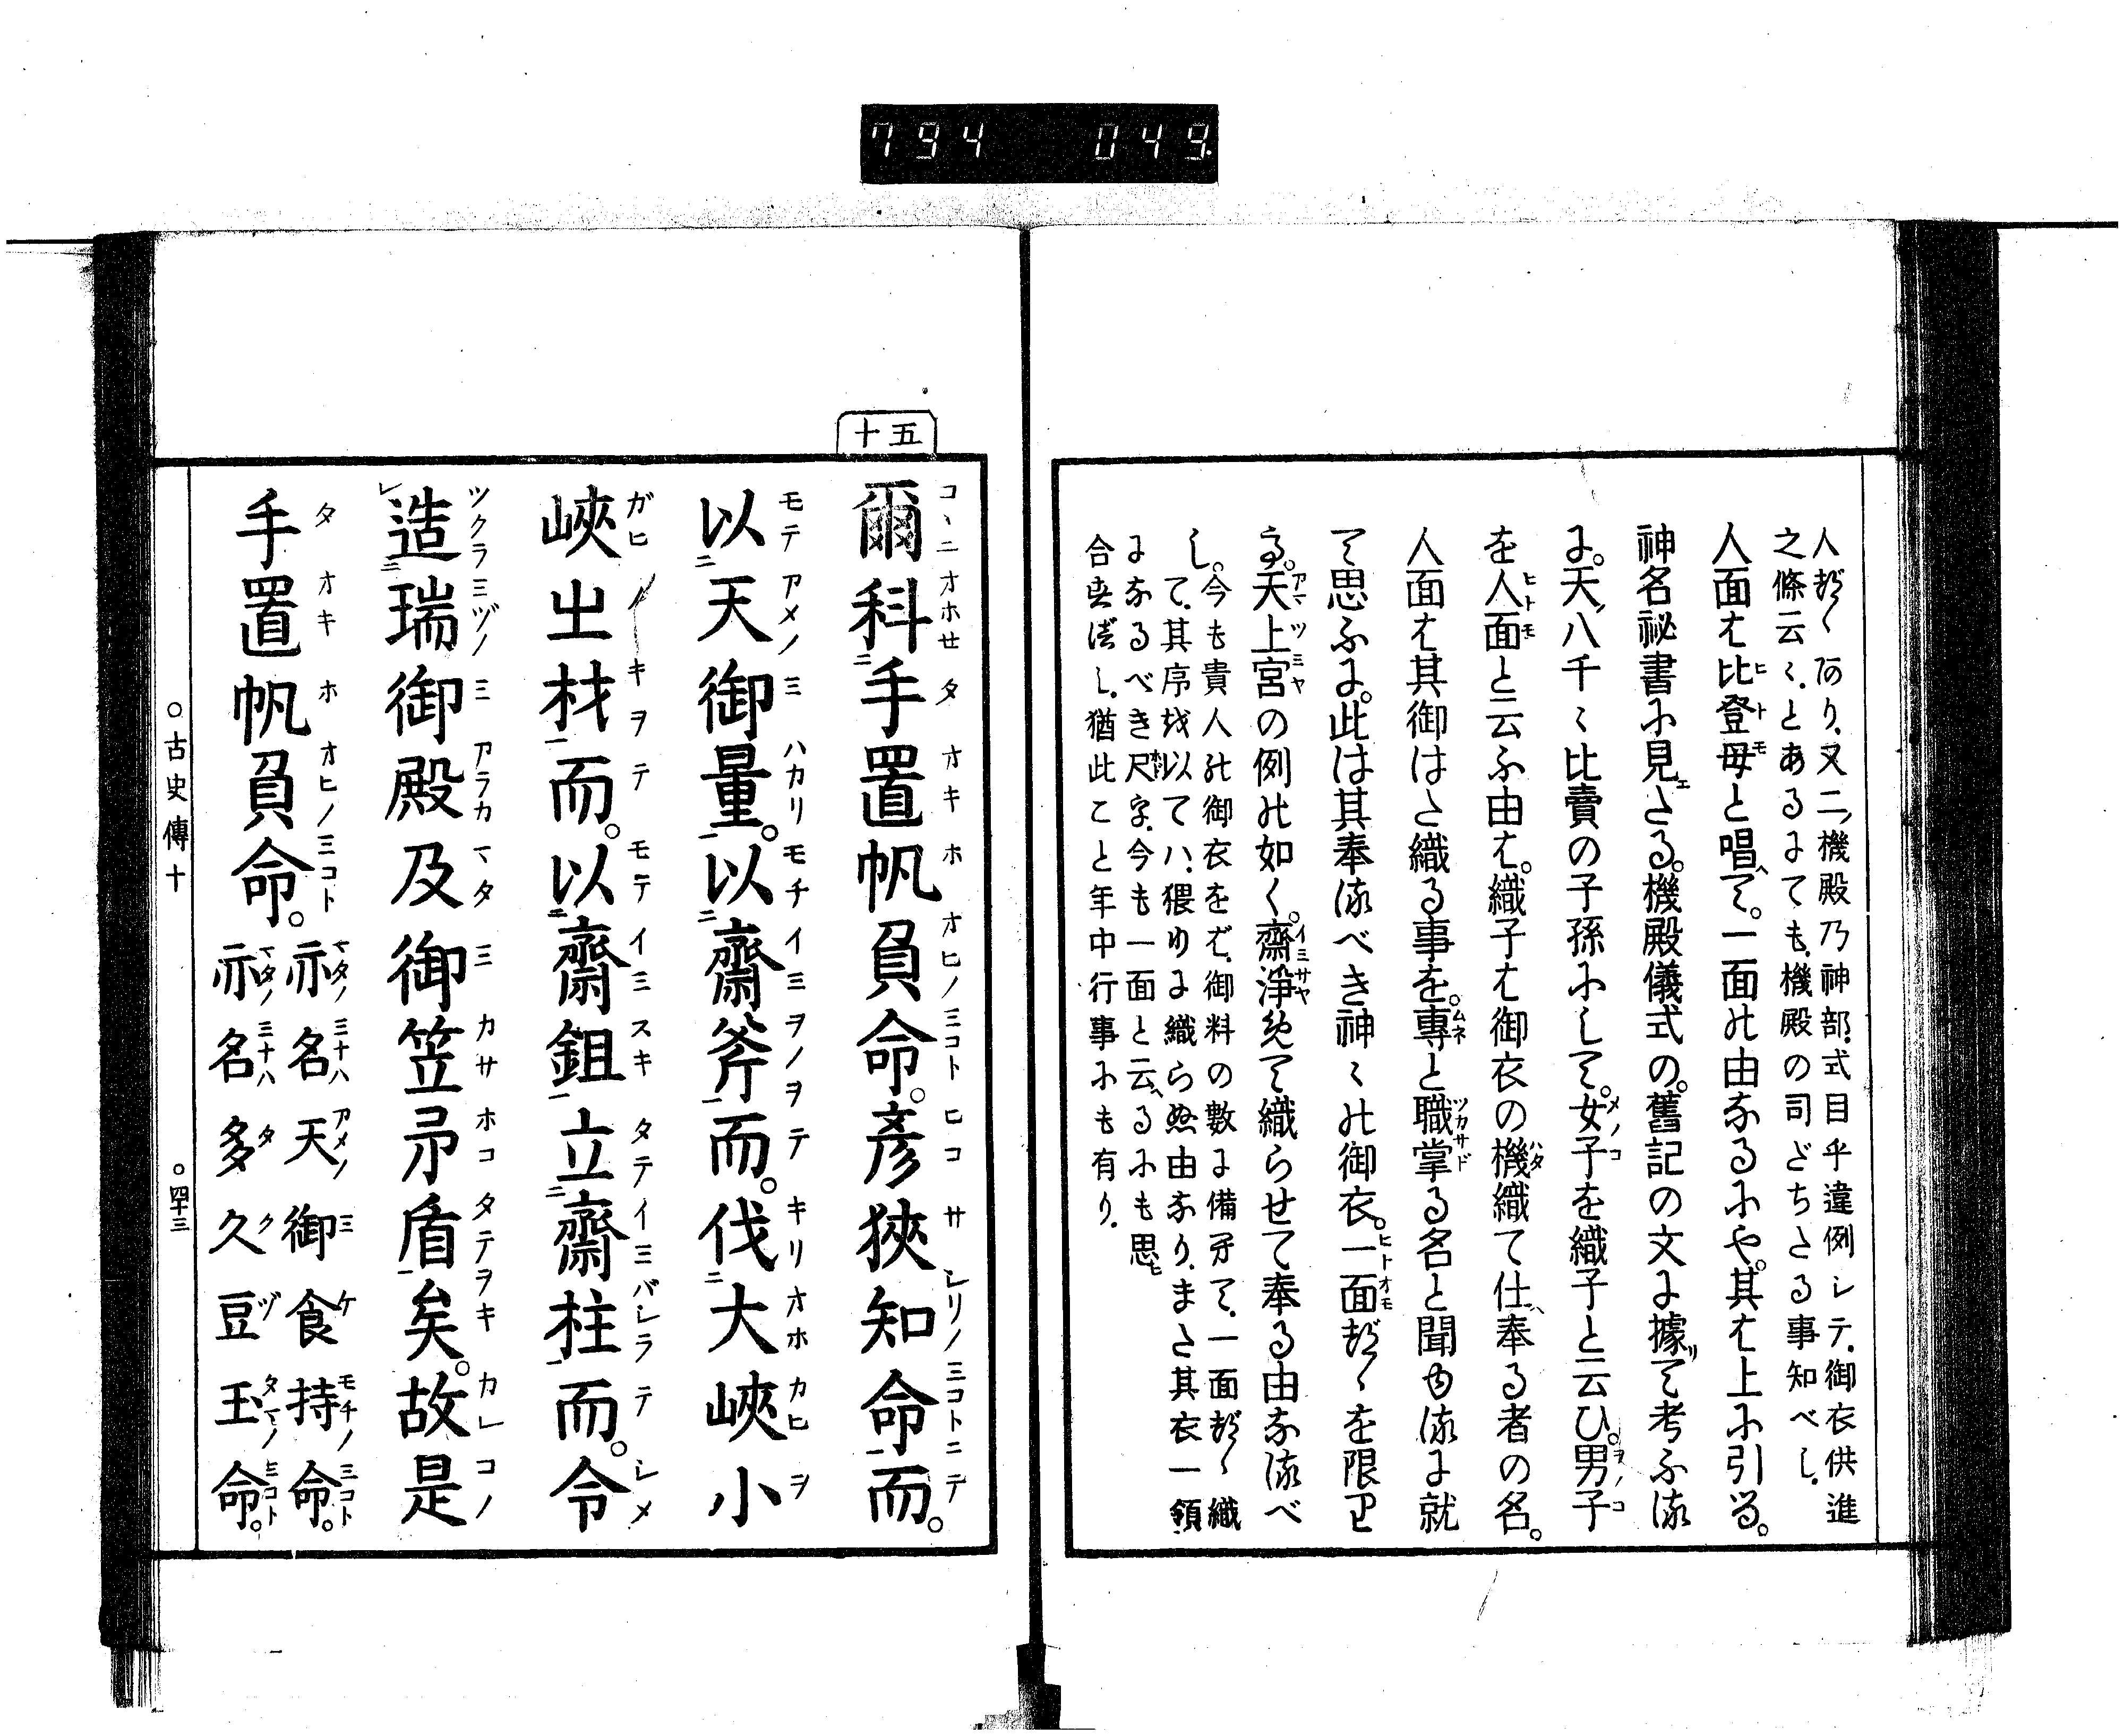 794 049.
人づゝあり、又二ノ機殿乃神部、式目乎違例シテ、御衣供進
之條云々、とあるにても、機殿の司どちたる事知べし、
人面を比登母と唱へて。一面の由なるにや。其を上に引る。
神名祕書に見えたる。機殿儀式の。舊記の文に據りて考ふる
に。天ノ八千々比賣の子孫にして。女子を織子と云ひ。男子
を人面と云ふ由は。織子は御衣の機織て仕へ奉る者の名。
人面は其御はた織る事を。專と職掌る名と聞ゆるに就
て思ふに。此は其奉るべき神々の御衣。一面づゝを限り
る。天上宮の例の如く。齋淨めて織らせて奉る由なるべ
し。今も貴人の御衣をば、御料の數に備方て、一面づゝ織
て、其序を以てハ、猥りに織らぬ由なり、また其衣一領
になるべき尺を、今も一面と云へるにも思ひ
合すべし、猶此こと年中行事にも有り、
五十
爾科手置帆負命。彥狹知命而。
以天御量。以齋斧而。伐大峽小
峽之材而。以齋鉏立齋柱而。令
造瑞御殿及御笠矛盾矣。故是
手置帆負命。亦名天御食持命。
亦名多久豆玉命。
○古史傳十 ○四十三